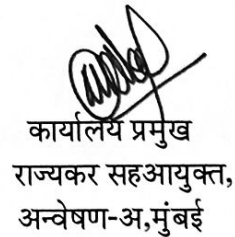 कार्यालय प्रमुख
राज्यकर सहआयुक्त,
अन्वेषण-अ,मुंबई